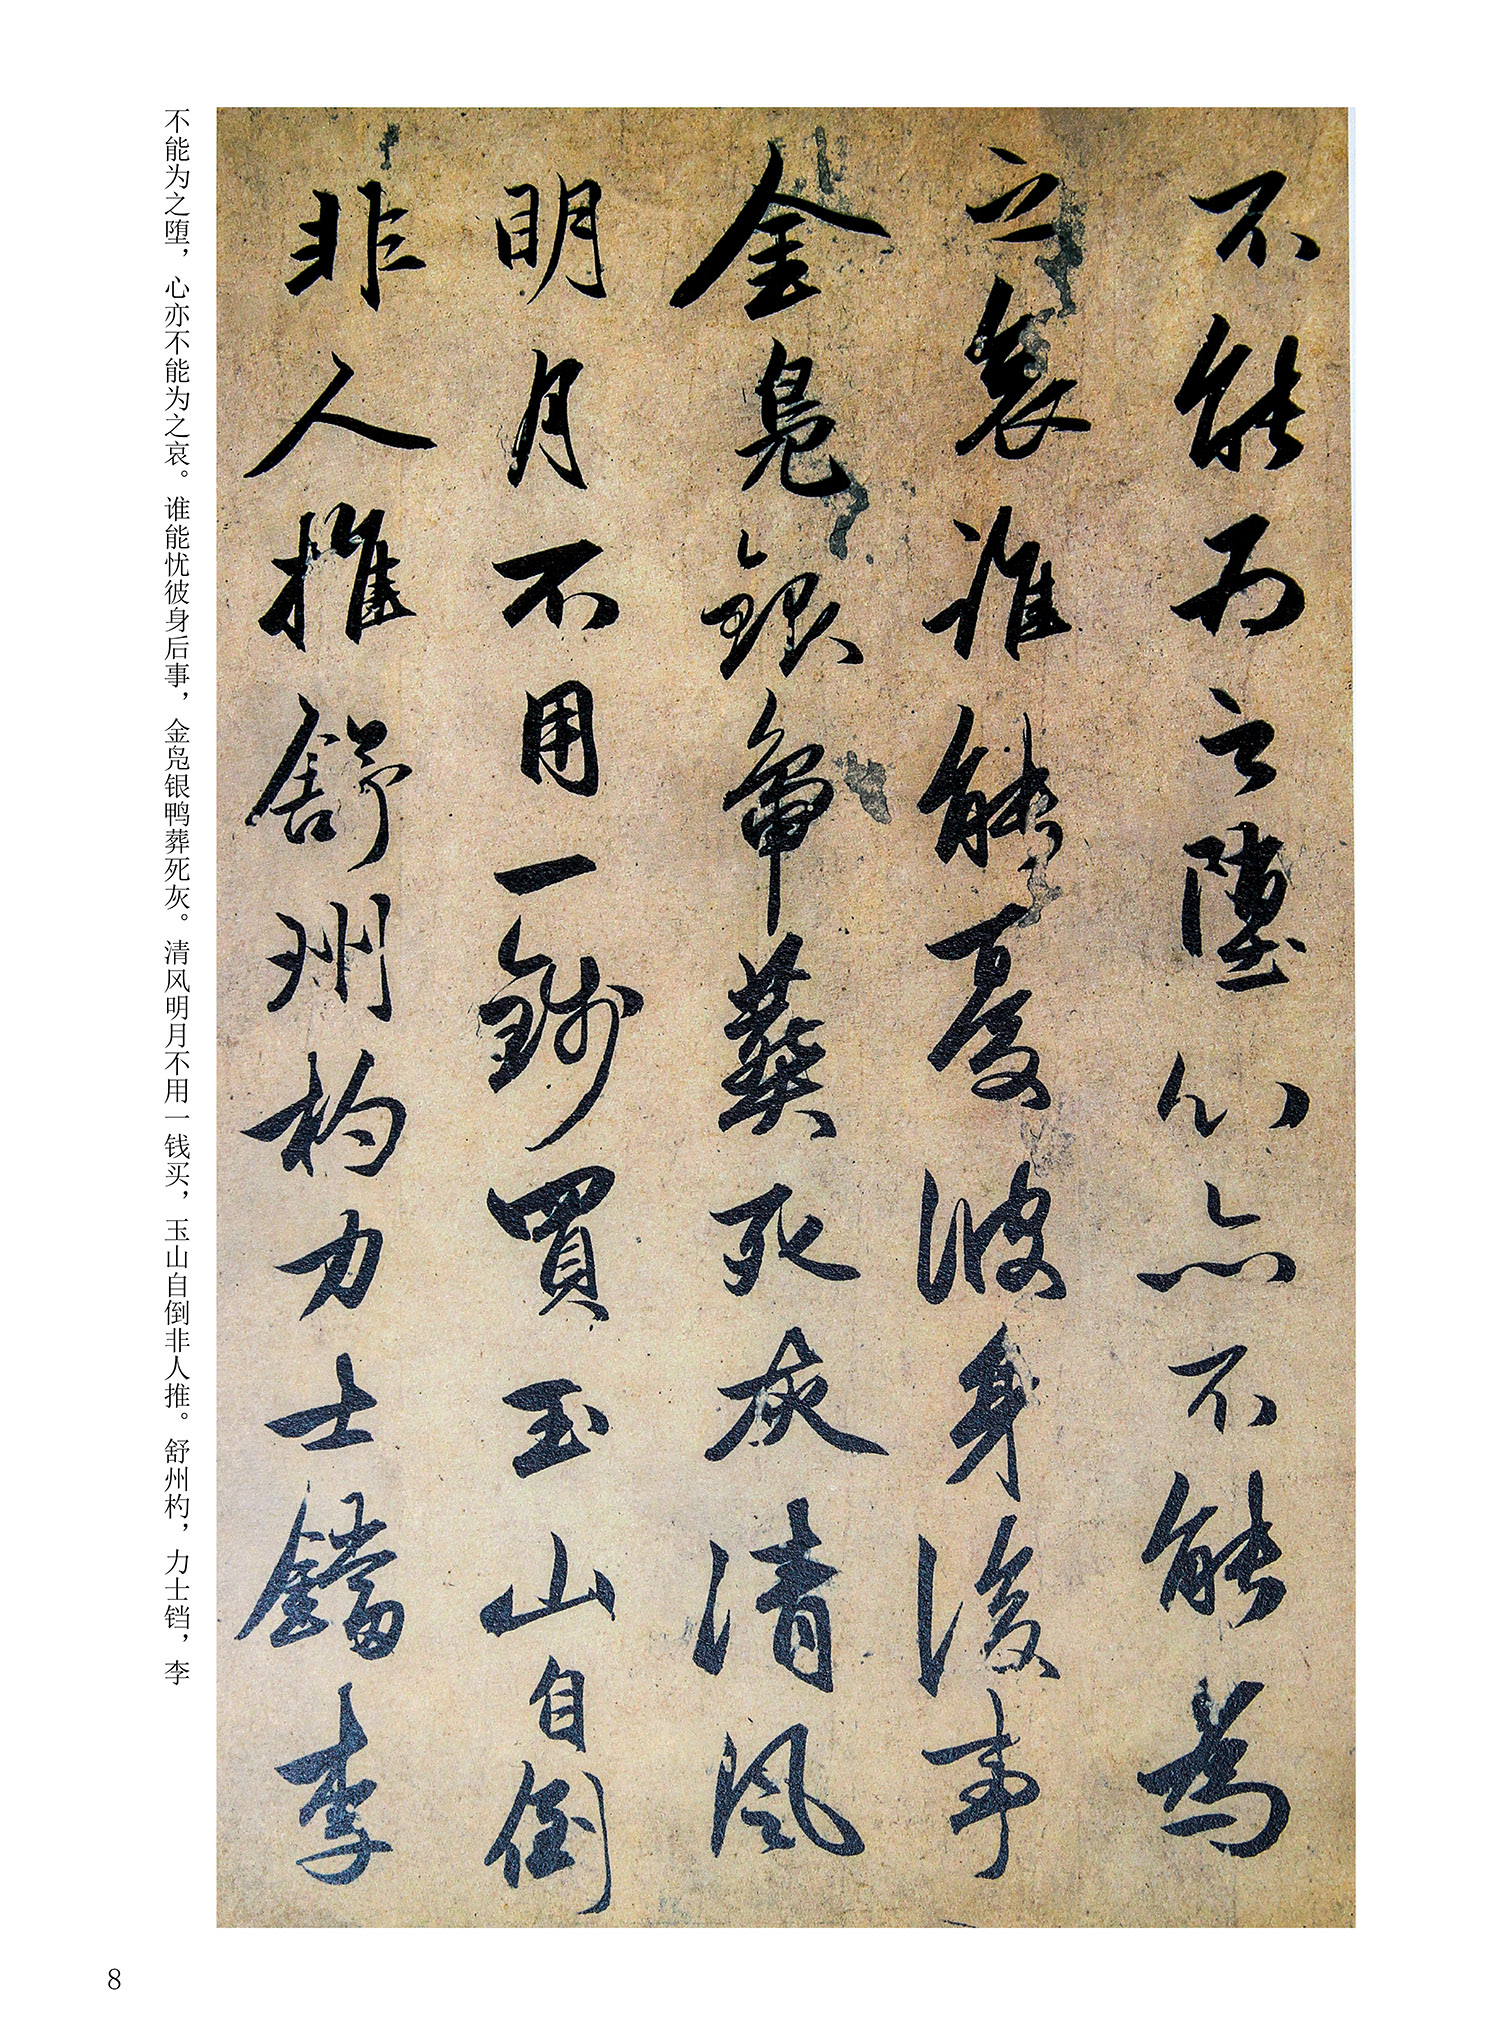 不能為之墮心亦不能為
之哀誰能憂彼身後事
金鳧銀葬死灰清風
明月不用一錢買玉山自倒
非人推舒州杓力士鐺李
不能为之堕，心亦不能为之哀。谁能忧彼身后事，金凫银鸭葬死灰。清风明月不用一钱买，玉山自倒非人推。舒州杓，力士铛，李
8